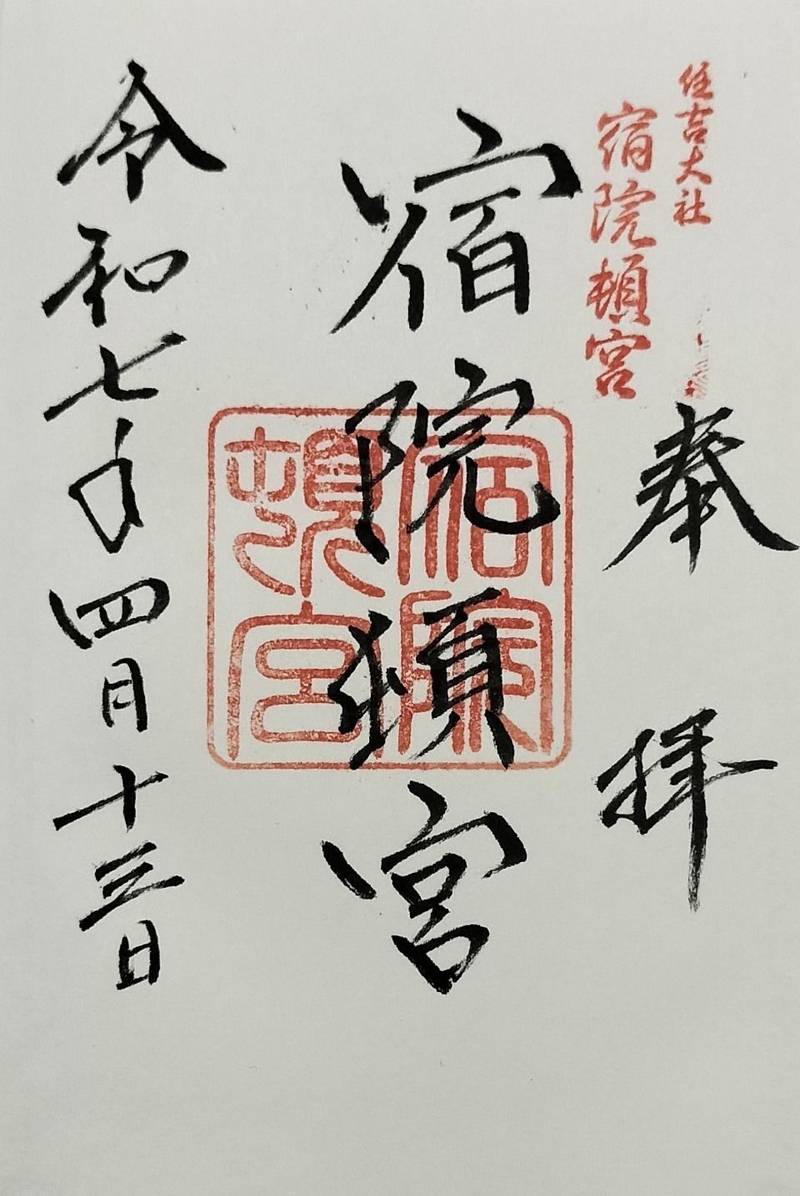 住吉大社
宿院頓宮
奉拝
宿院頓宮
宿院
頓宮
令和七年四月十三日